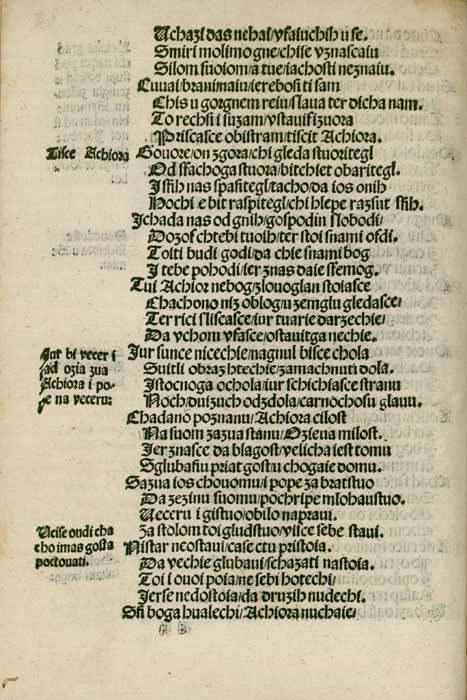 Uchazi das nehai/vfaiuchih u se.
Smiri molimo gne/chise vznascaiu
Silom suoiom/a tue/iachosti neznaiu.
Cuuai/brani naiu/ierebosi ti sam
Chis u gorgnem reiu/slaua ter dicha nam.
To rechsi i suzam/vstauifi zuora
Priscasce obistram/tiscit Achiora.
Tisce Achiora
Gouore/on zgora/chi gleda stuoritegl
Od sfachoga stuora/bitchiet obaritegl.
I sfih nas spasitegl/tacho/da ios onih
Hochi e bit raspitegl/chi hlepe razsut sfih.
Ichada nas od gnih/gospodin slobodi/
Dozof chtebi tuoih/ter stoi snami ofdi.
Toiti budi godi/da chie snami bog
I tebe pohodi/ier znas daie sfemog.
Tui Achior nebog/zlouoglan stoiasce
Chachono niz oblog/u zemglu gledasce/
Ter rici sliscasce/iur tuarie darzechie/
Da vchom vfasce/ostauitga nechie.
Iur bi vecer i
iad ozia zua
Achiora i po=
fe na veceru:
Iur sunce nicechie/magnul bisce chola
Suitli obraz htechie/zamachnuti dola.
Istocnoga ochola/iur schichiasce stranu
Noch/duizuch odzdola/carnochosu glauu.
Chadano poznanu/Achiora cilost
Na suom zazua stanu/Ozieua milost.
Ier znasce da blagost/velicha iest tomu
Sglubafiu priat gost/u chogaie domu.
Sazua ios chouomu/i pope za bratstuo
Da zezinu suomu/pochripe mlohaustuo.
Ueceru i gistuo/obilo napraui.
Ucise oudi cha
cho imas gosta
poctouati.
Za stolom toi gludstuo/visce sebe staui.
Nistar neostaui/ca se ctu pristoia.
Da vechie glubaui/sehazati nastoia.
Toi i ouoi poia/ne sebi hotechi/
Ierse nedostoia/da druzih nudechi.
Sfi boga hualechi/Achiora nuchaie/
A B